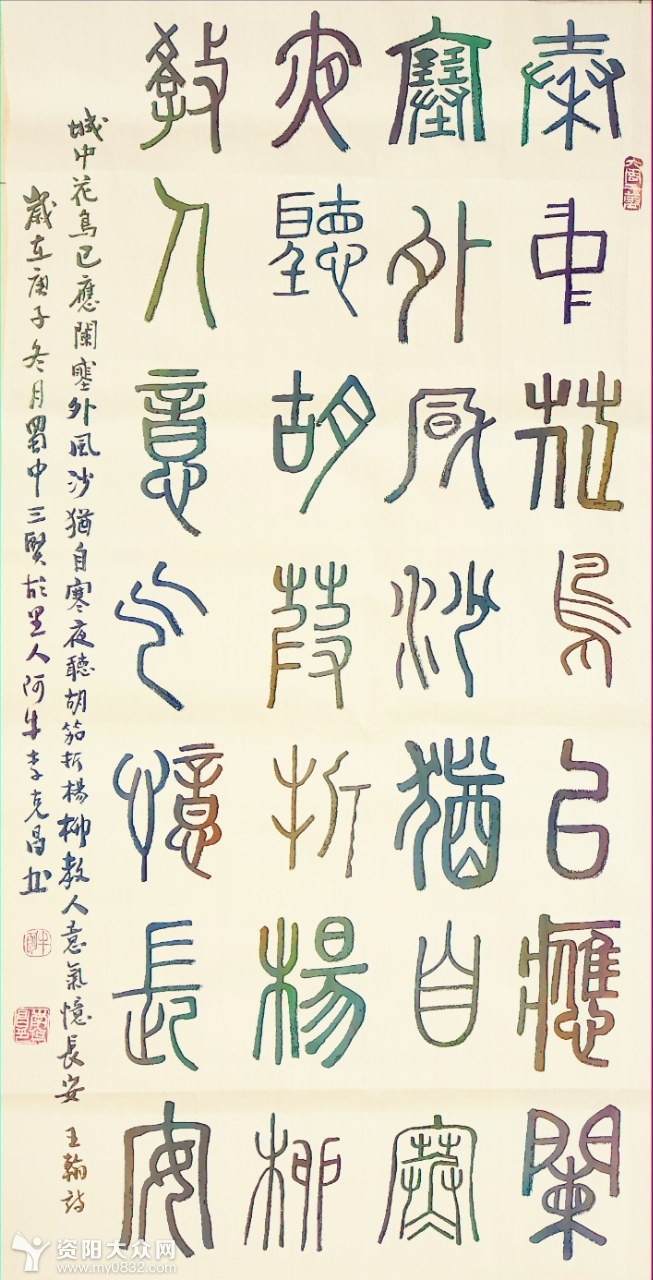 秦中花鳥已應闌
塞外風沙猶自寒
夜聽胡葭折楊柳
教人意气憶長安
城中花鳥已應闌塞外風沙猶自寒夜聽胡笳折楊柳教人意氣憶長安 王翰詩
歲在庚子冬月蜀中三賢故里人阿牛李克昌书
资阳大众网
www.my0832.com